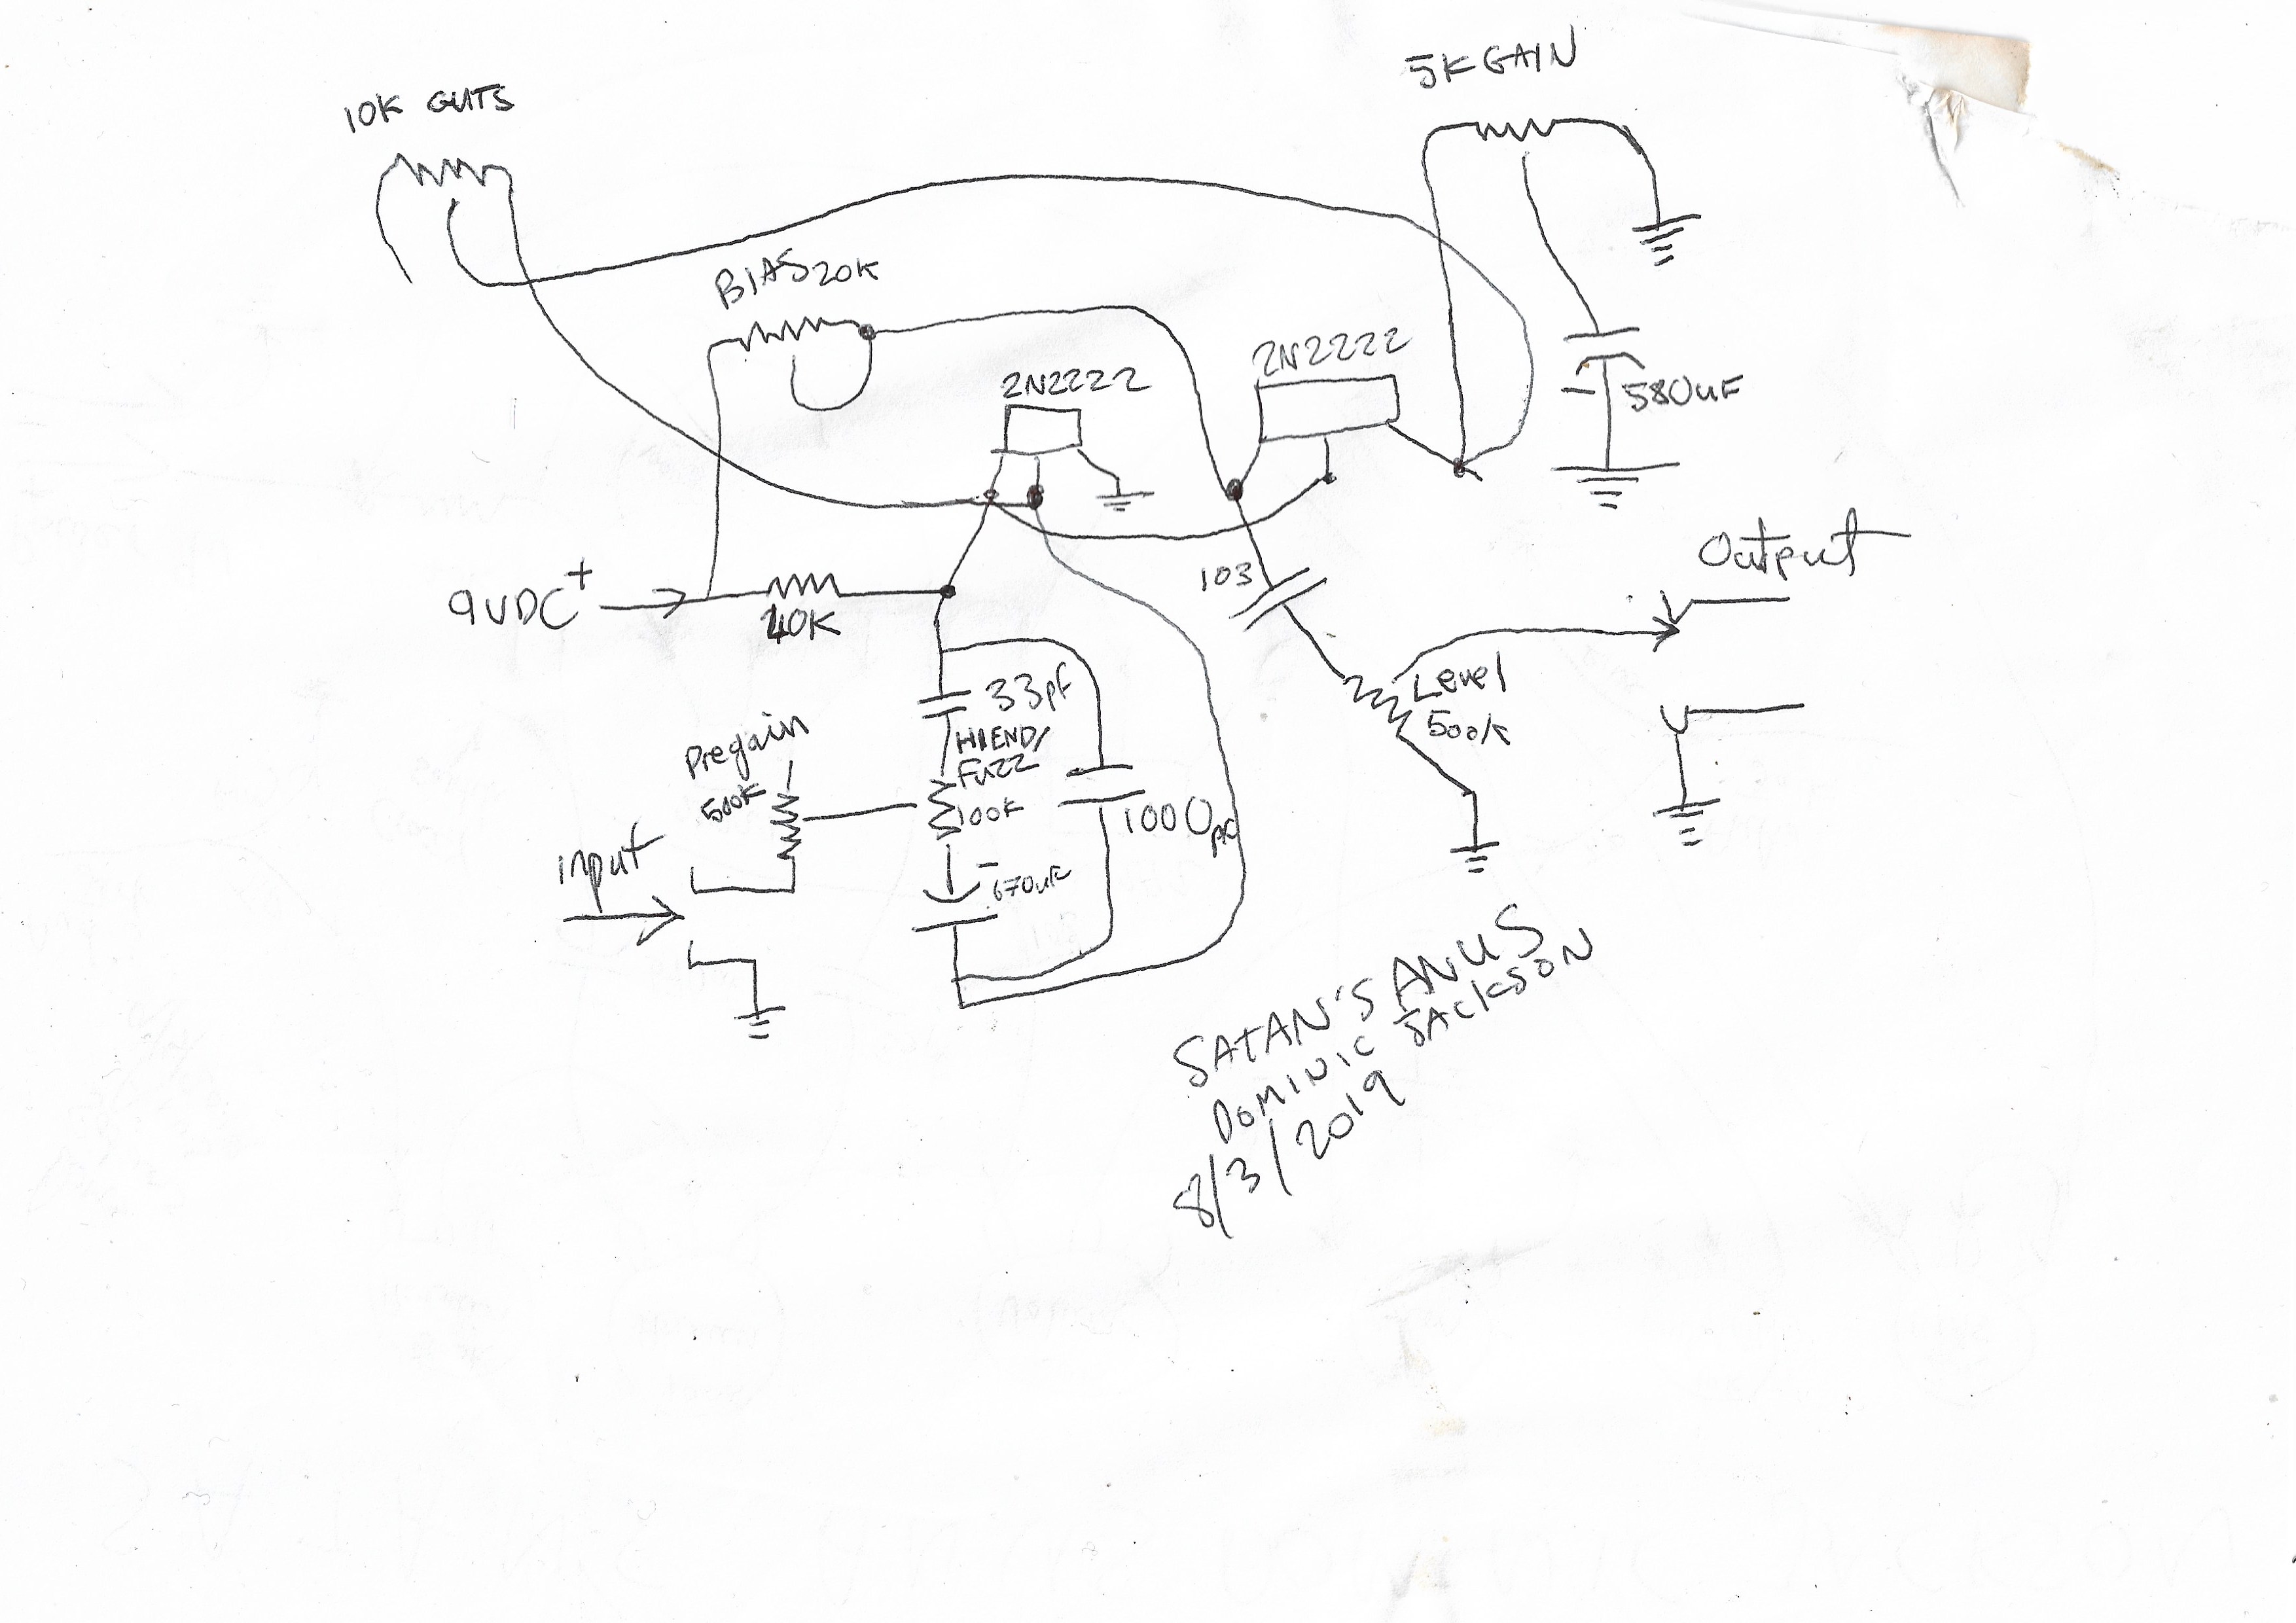 5K GAIN
10K GUTS
BIAS 20K
2N2222
2N2222
580uF
Output
9VDC+
103
Level
500K
33pf
HIEND/
Fuzz
100K
Pregain
500K
input
SATAN'S ANUS
DOMINIC JACKSON
8/3/2019